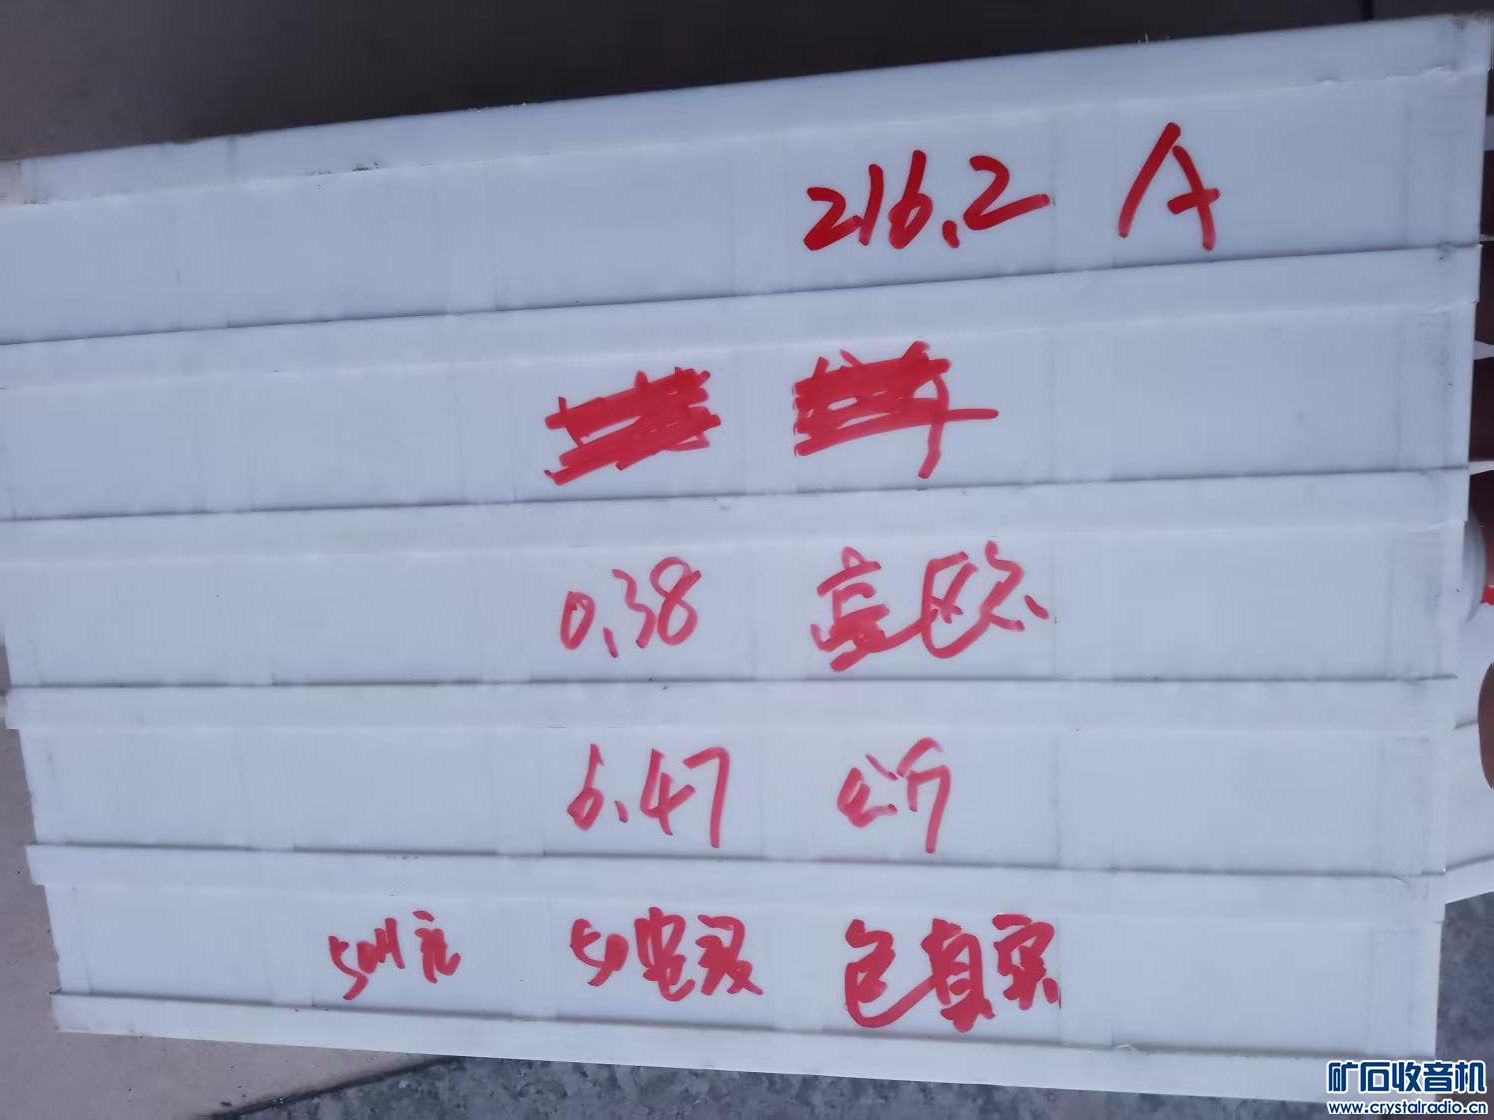 216.2 A
0.38 毫欧
6.47 公斤
50 包真实
矿石收音机
www.crystalradio.cn